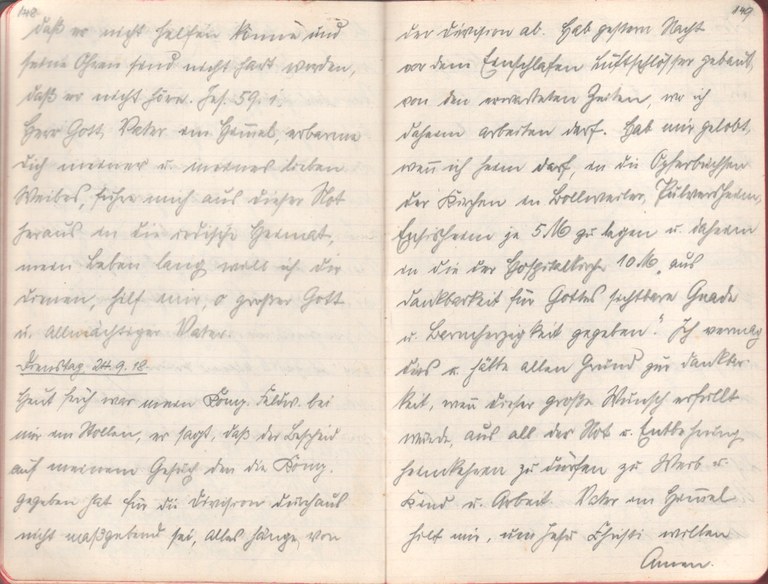 148
daß er nicht helfen könne und
seine Ohren sind nicht hart worden,
daß er nicht höre. Jes. 59. 1.
Herr Gott, Vater im Himmel, erbarme
dich meiner u. meines lieben
Weibes, führe mich aus dieser Not
heraus in die irdische Heimat,
mein Leben lang will ich dir
dienen, hilf mir, o großer Gott
u. allmächtiger Vater.
Dienstag 24.9.18.
Heut früh war mein Komp. Feldw. bei
mir im Stollen, er sagt, daß der Bescheid
auf meinem Gesuch den die Komp.
gegeben hat für die Division durchaus
nicht maßgebend sei, alles hänge von
149
der Division ab. Hab gestern Nacht
vor dem Einschlafen Luftschlösser gebaut,
von den erwarteten Zeiten, wo ich
daheim arbeiten darf. Hab mir gelobt,
wenn ich heim darf, in die Opferbüchsen
der Kirchen in Bollweiler, Pulversheim,
Ensisheim je 5 M zu legen u. daheim
in die der Hospitalkirche 10 M „aus
Dankbarkeit für Gottes sichtbare Gnade
u. Barmherzigkeit gegeben". Ich vermag
dies u. hätte allen Grund zur Dankbar-
keit, wenn dieser große Wunsch erfüllt
würde, aus all der Not u. Entbehrung
heimkehren zu dürfen zu Weib u.
Kind u. Arbeit. Vater im Himmel
hilf mir, um Jesu Christi willen
Amen.